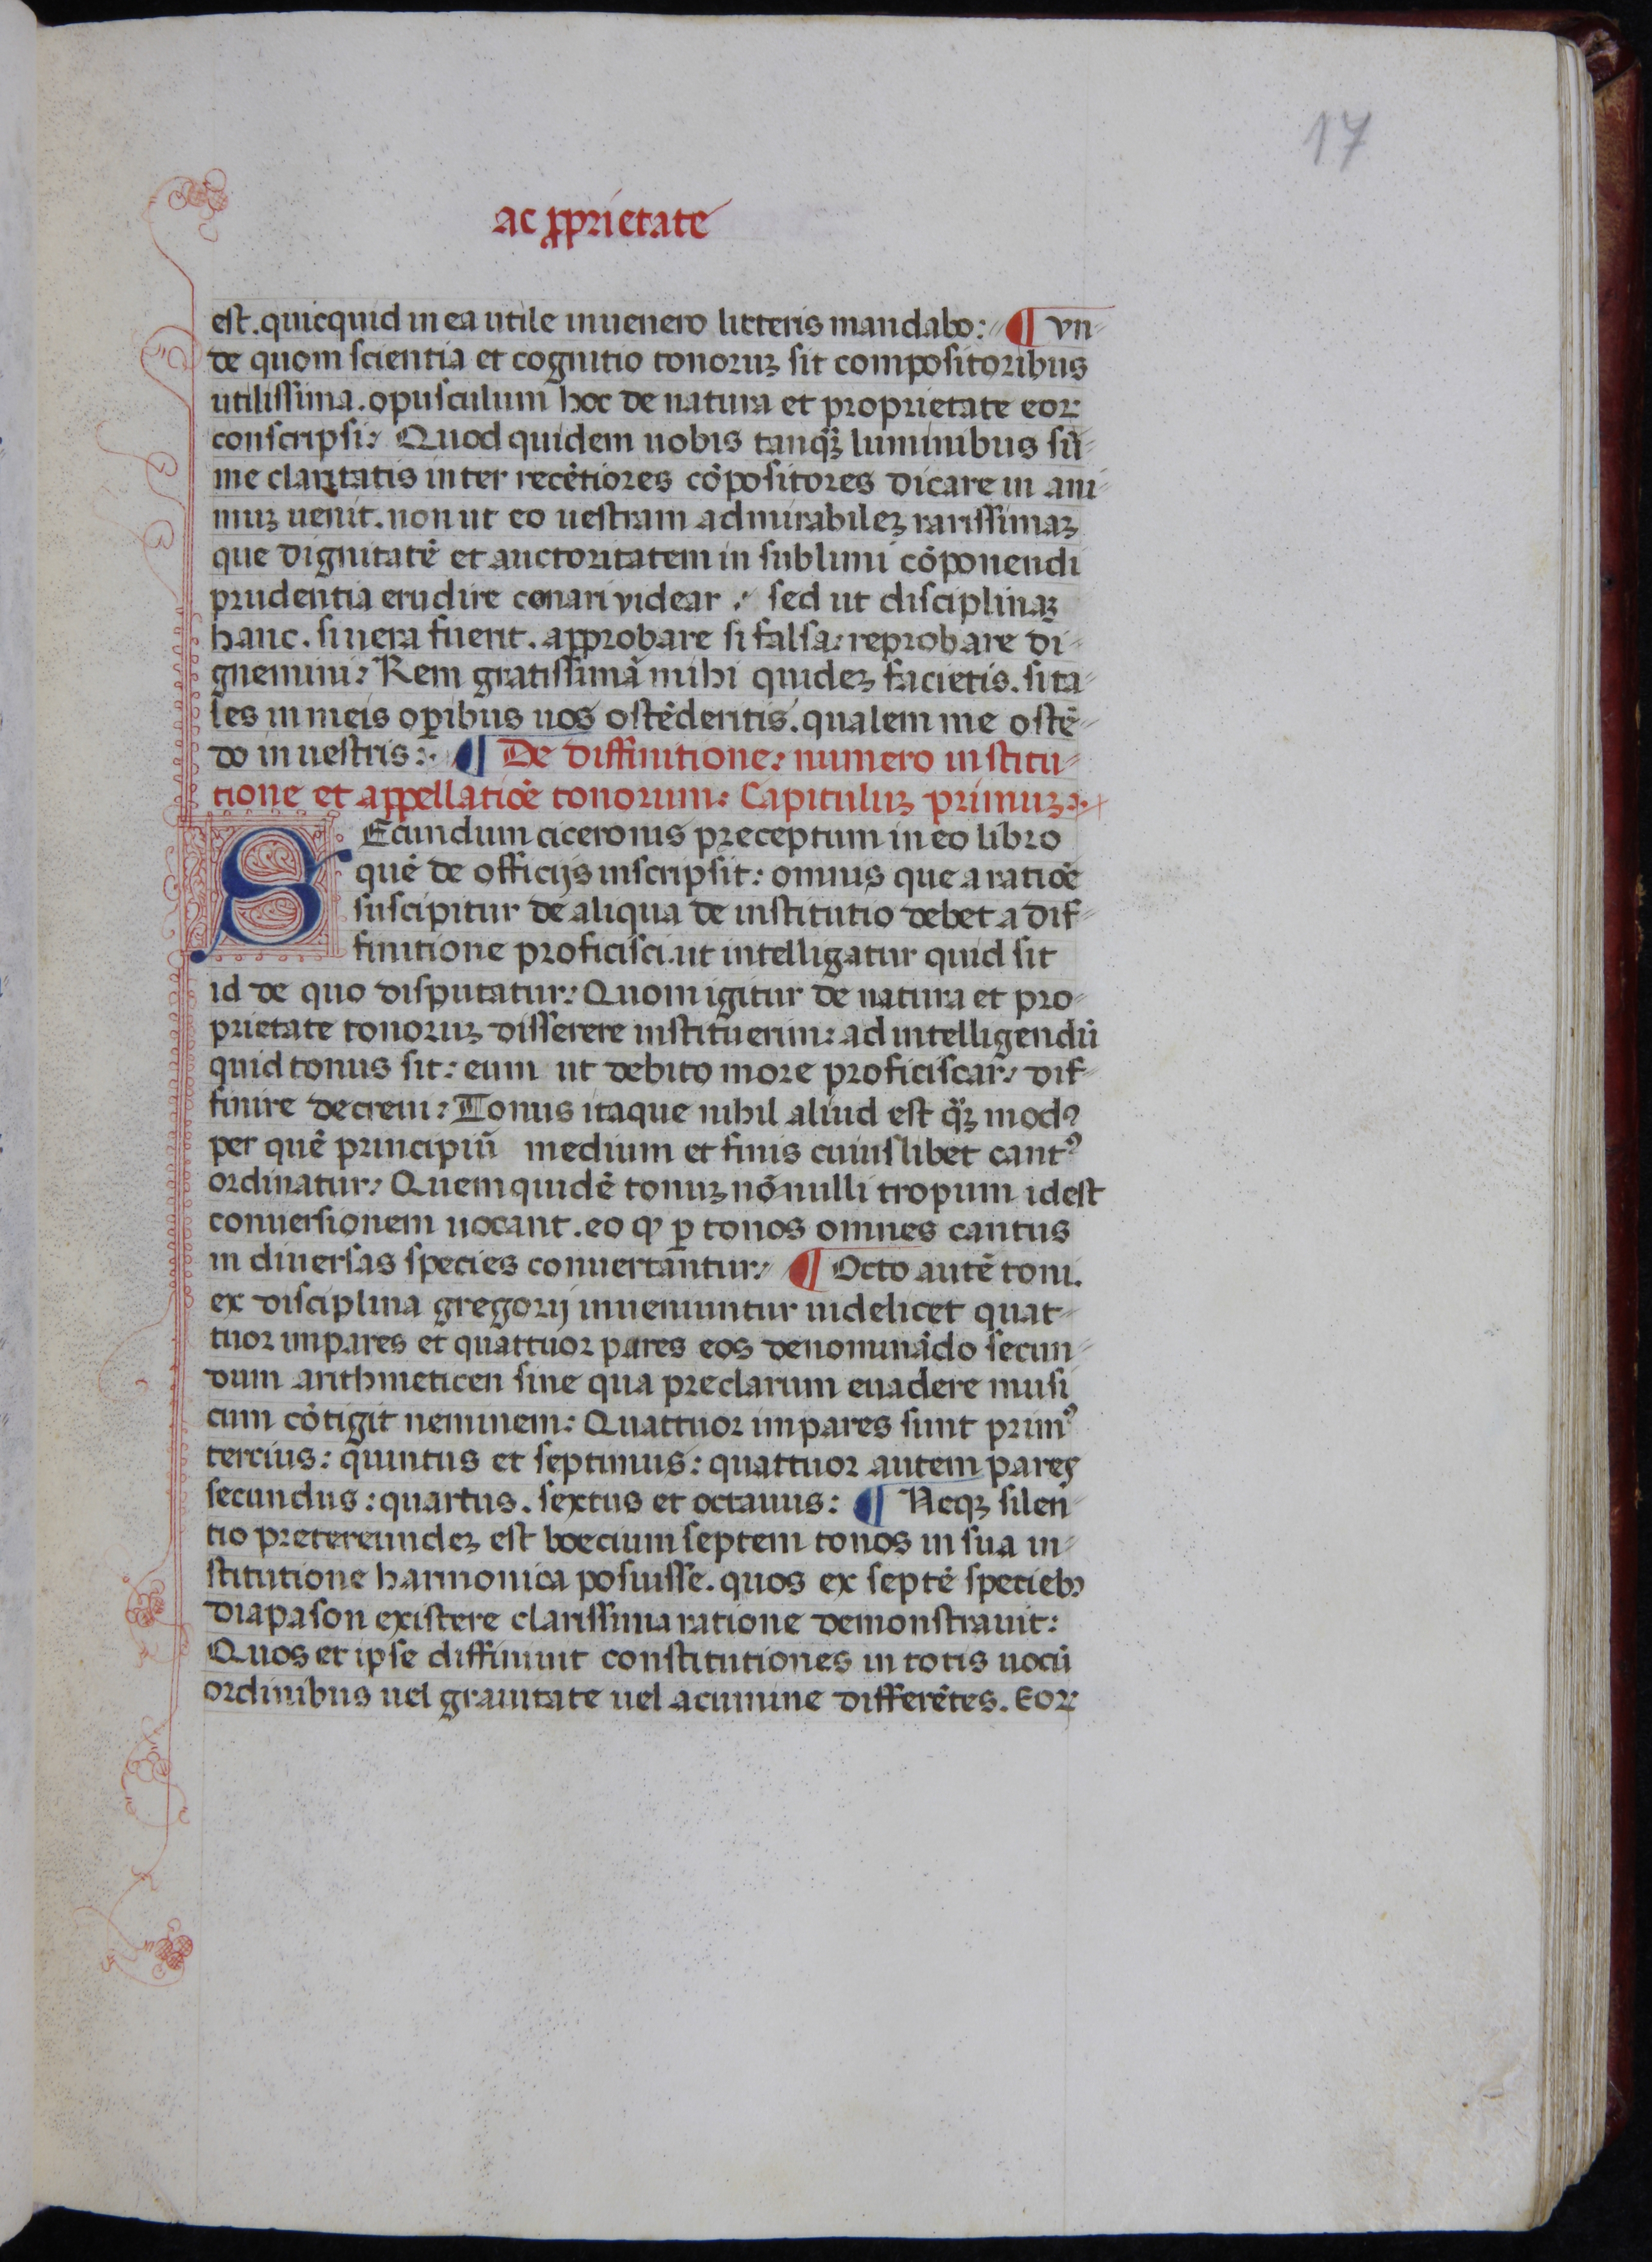 17
ac ꝓprietate
est. quicquid in ea utile inuenero litteris mandabo: ¶ vn-
de quom scientia et cognitio tonoruꝫ sit compositoribus
utilissima. opusculum hoc de natura et proprietate eoꝝ
conscripsi: Quod quidem uobis tanqꝫ̃ luminibus sū-
me claritatis inter recētiores cōpositores dicare in ani-
muꝫ uenit. non ut eo uestram admirabileꝫ rarissimaꝫ
que dignitatē et auctoritatem in sublimi cōponendi
prudentia erudire conari videar: sed ut disciplinaꝫ
hanc. si uera fuerit. approbare si falsa: reprobare di-
gnemini: Rem gratissimā mihi quideꝫ facietis. si ta-
les in meis oꝑibus uos ostēderitis. qualem me ostē-
do in uestris: ¶ De diffinitione: numero institu-
tione et appellatiōe tonorum: Capituluꝫ primuꝫ:
SEcundum ciceronis preceptum in eo libro
quē de officijs inscripsit: omnis que a ratiōe
suscipitur de aliqua de institutio debet a dif-
finitione proficisci. ut intelligatur quid sit
id de quo disputatur: Quom igitur de natura et pro-
prietate tonoruꝫ disserere instituerim: ad intelligendū
quid tonus sit: eum ut debito more proficiscar: dif-
finire decreui: Tonus itaque nihil aliud est qꝫ̃ modꝰ
per quē principiū medium et finis cuiuslibet cantꝰ
ordinatur: Quem quidē tonuꝫ nōnulli tropum idest
conuersionem uocant. eo ꝙ ꝑ tonos omnes cantus
in diuersas species conuertantur: ¶ Octo autē toni.
ex disciplina gregorij inueniuntur uidelicet quat-
tuor impares et quattuor pares eos denominādo secun-
dum arithmeticen sine qua preclarum euadere musi
cum cōtigit neminem: Quattuor impares sunt primꝰ
tercius: quintus et septimus: quattuor autem pares
secundus: quartus. sextus et octauus: ¶ Neqꝫ silen-
tio pretereundeꝫ est boecium septem tonos in sua in-
stitutione harmonica posuisse. quos ex septē specieb᷒
diapason existere clarissima ratione demonstrauit:
Quos et ipse diffiniuit constitutiones in totis uocū
ordinibus uel grauitate uel acumine differētes. Eoꝝ